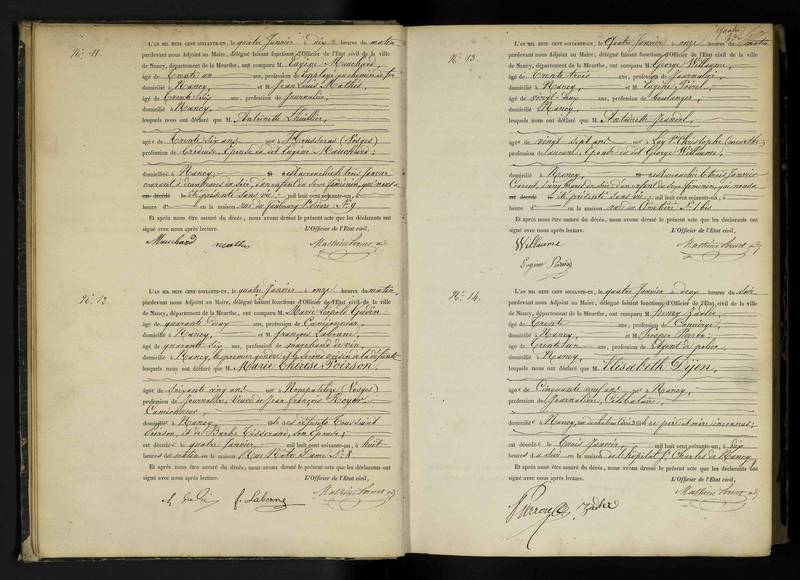 N° 11.
L'AN MIL HUIT CENT SOIXANTE-UN, le quatre Janvier à dix heures du matin
pardevant nous Adjoint au Maire, délégué faisant fonctions d'Officier de l'Etat civil de la ville
de Nancy, département de la Meurthe, ont comparu M. Eugène Mouchard,
âgé de Trente un ans, profession de Employé au chemin de fer
domicilié à Nancy, et M. Jean Louis Mathis,
âgé de Trente six ans, profession de Journalier,
domicilié à Nancy
lesquels nous ont déclaré que M. Antoinette Lhuillier
âgée de Trente six ans née à Housseras (Vosges)
profession de Brodeuse, Epouse du dit Eugène Mouchard;
domiciliée à Nancy est accouchée le trois Janvier
courant, à du soir, d'un enfant du sexe féminin, qui nous a
été présenté sans vie mil huit cent soixante-un, à
heure en la maison rue du faubourg St Pierre N° 9
Et après nous être assuré du décès, nous avons dressé le présent acte que les déclarants ont
signé avec nous après lecture. L'Officier de l'Etat civil,
Mouchard
N° 12.
L'AN MIL HUIT CENT SOIXANTE-UN, le quatre Janvier à onze heures du matin,
pardevant nous Adjoint au Maire, délégué faisant fonctions d'Officier de l'Etat civil de la ville
de Nancy, département de la Meurthe, ont comparu M. Marie Léopold
âgé de quarante deux ans, profession de Camionneur
domicilié à Nancy et M. françois Labonne,
âgé de quarante six ans, profession de marchand de vin,
domicilié à Nancy, le premier gendre et le second voisin de la défunte
lesquels nous ont déclaré que M. Marie Thérèse Poirson,
âgée de soixante cinq ans née à Nompatelize (Vosges)
profession de Journalière, Veuve de Jean françois Royer
Camionneur,
domiciliée à Nancy, des défunts Toussaint
Poirson, et de Barbe son Epouse;
est décédée le quatre Janvier mil huit cent soixante-un, à huit
heures du matin en la maison Rue Notre Dame N° 8
Et après nous être assuré du décès, nous avons dressé le présent acte que les déclarants ont
signé avec nous après lecture. L'Officier de l'Etat civil,
f. Labonne
N° 13.
L'AN MIL HUIT CENT SOIXANTE-UN, le Quatre Janvier à onze heures du matin
pardevant nous Adjoint au Maire, délégué faisant fonctions d'Officier de l'Etat civil de la ville
de Nancy, département de la Meurthe, ont comparu M. George Willaume,
âgé de Trente trois ans, profession de Journalier
domicilié à Nancy, et M. Eugène
âgé de vingt deux ans, profession de Boulanger,
domicilié à Nancy,
lesquels nous ont déclaré que M. Antoinette
âgée de vingt sept ans née à Lay St Christophe (meurthe)
profession de Epouse du dit George Willaume;
domiciliée à Nancy, est accouchée le trois Janvier
courant, à onze heures du soir, d'un enfant du sexe féminin, qui nous a
été présenté sans vie mil huit cent soixante-un, à
heure en la maison rue du Cimetière N° 1 bis
Et après nous être assuré du décès, nous avons dressé le présent acte que les déclarants ont
signé avec nous après lecture. L'Officier de l'Etat civil,
Willaume
Eugène
N° 14.
L'AN MIL HUIT CENT SOIXANTE-UN, le quatre Janvier à deux heures du soir
pardevant nous Adjoint au Maire, délégué faisant fonctions d'Officier de l'Etat civil de la ville
de Nancy, département de la Meurthe, ont comparu M. Henry
âgé de Trente ans, profession de Concierge,
domicilié à Nancy, et M. Prosper
âgé de Trente un ans, profession de Agent de police
domicilié à Nancy,
lesquels nous ont déclaré que M. Elisabeth Dijen,
âgée de Cinquante neuf ans née à Nancy,
profession de Journalière, Célibataire,
domiciliée à Nancy, père & mère inconnus;
est décédée le Trois Janvier, mil huit cent soixante-un, à dix
heures du soir en la maison de l'hôpital St Charles de Nancy
Et après nous être assuré du décès, nous avons dressé le présent acte que les déclarants ont
signé avec nous après lecture. L'Officier de l'Etat civil,